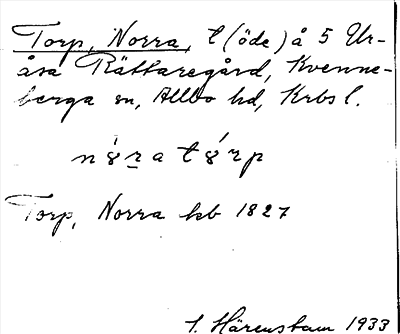 Torp, Norra, t (öde) å 5 Ur-
åsa Rättaregård, Kvenne-
berga sn, Allbo hd, Krbs l.
nɣ́ra tɣ́rp
Torp, Norra kb 1827
Härenstam 1933